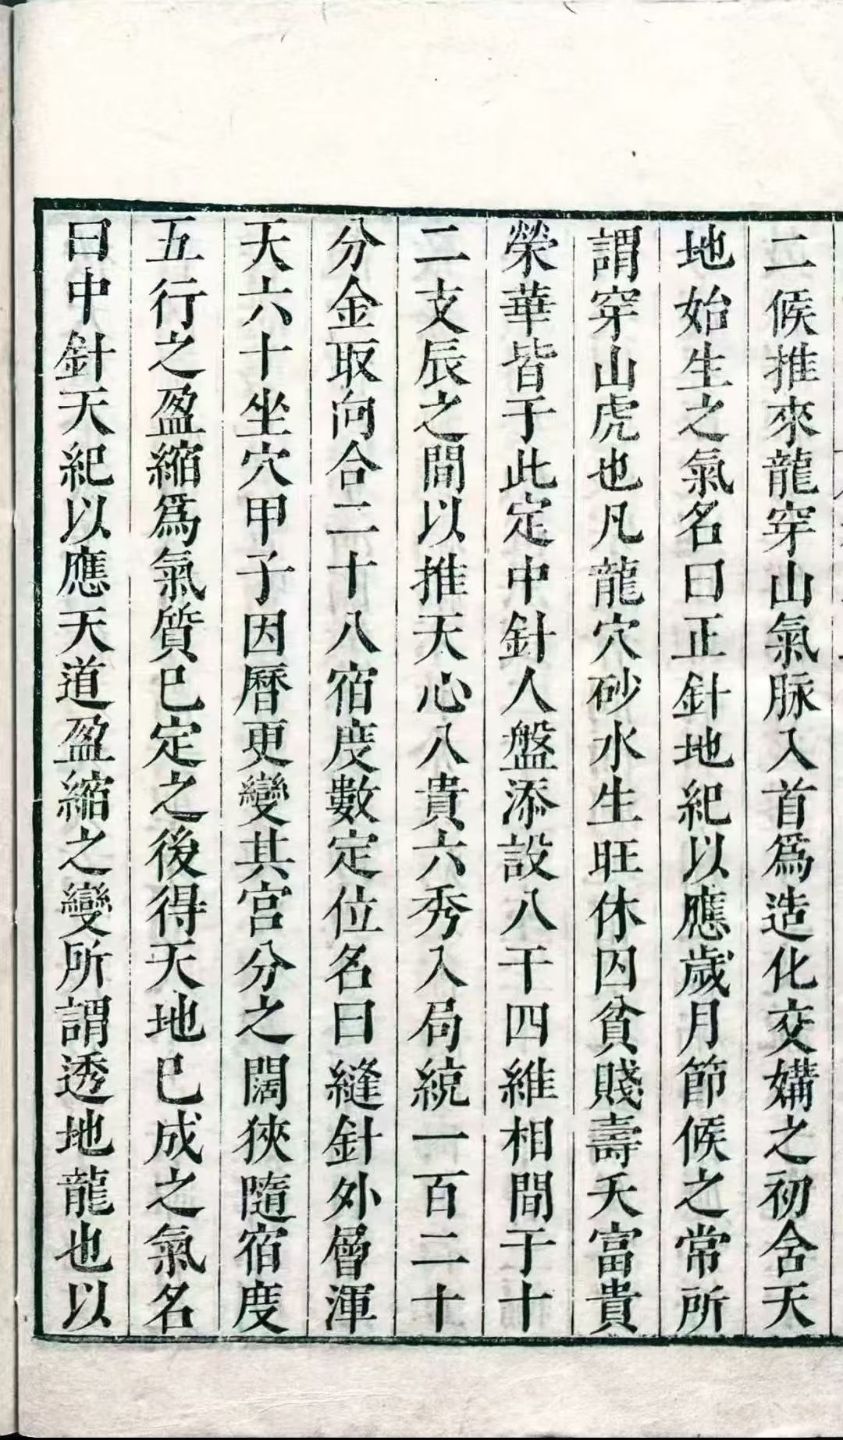 二候推來龍穿山氣脉入首爲造化交媾之初含天
地始生之氣名曰正針地紀以應歲月節候之常所
謂穿山虎也凡龍穴砂水生旺休囚貧賤壽夭富貴
榮華皆于此定中針人盤添設八干四維相間于十
二支辰之間以推天心八貴六秀入局統一百二十
分金取向合二十八宿度數定位名曰縫針外層渾
天六十坐穴甲子因曆更變其宮分之闊狹隨宿度
五行之盈縮爲氣質已定之後得天地已成之氣名
曰中針天紀以應天道盈縮之變所謂透地龍也以